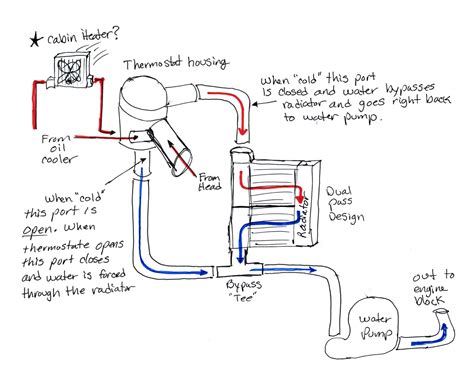 ★ Cabin Heater?
Thermostat housing
When "cold" this port
is closed and water bypasses
radiator and goes right back
to water pump.
From
oil
cooler
From
Head
When "cold"
this port is
open. When
thermostate opens
this port closes
and water is forced
through the radiator
Radiator
Dual
Pass
Design
Bypass
"Tee"
Water
Pump
out to
engine
block